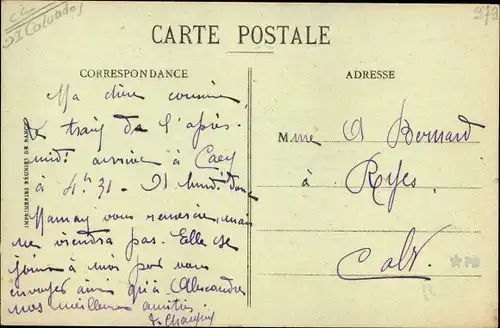 CL
(Calvados)
973
CARTE POSTALE
CORRESPONDANCE
ADRESSE
Ma chère cousine,
Le train de l'après-
midi arrive à Caen
à 4h 31. A lundi donc
Maman vous remercie, mais
ne viendra pas. Elle se
joint à moi pour vous
envoyer ainsi qu'à Alexandre
nos meilleures amitiés
Mme A Bernard
à Ryes
Calv.
IMPRIMERIES RÉUNIES DE NANCY